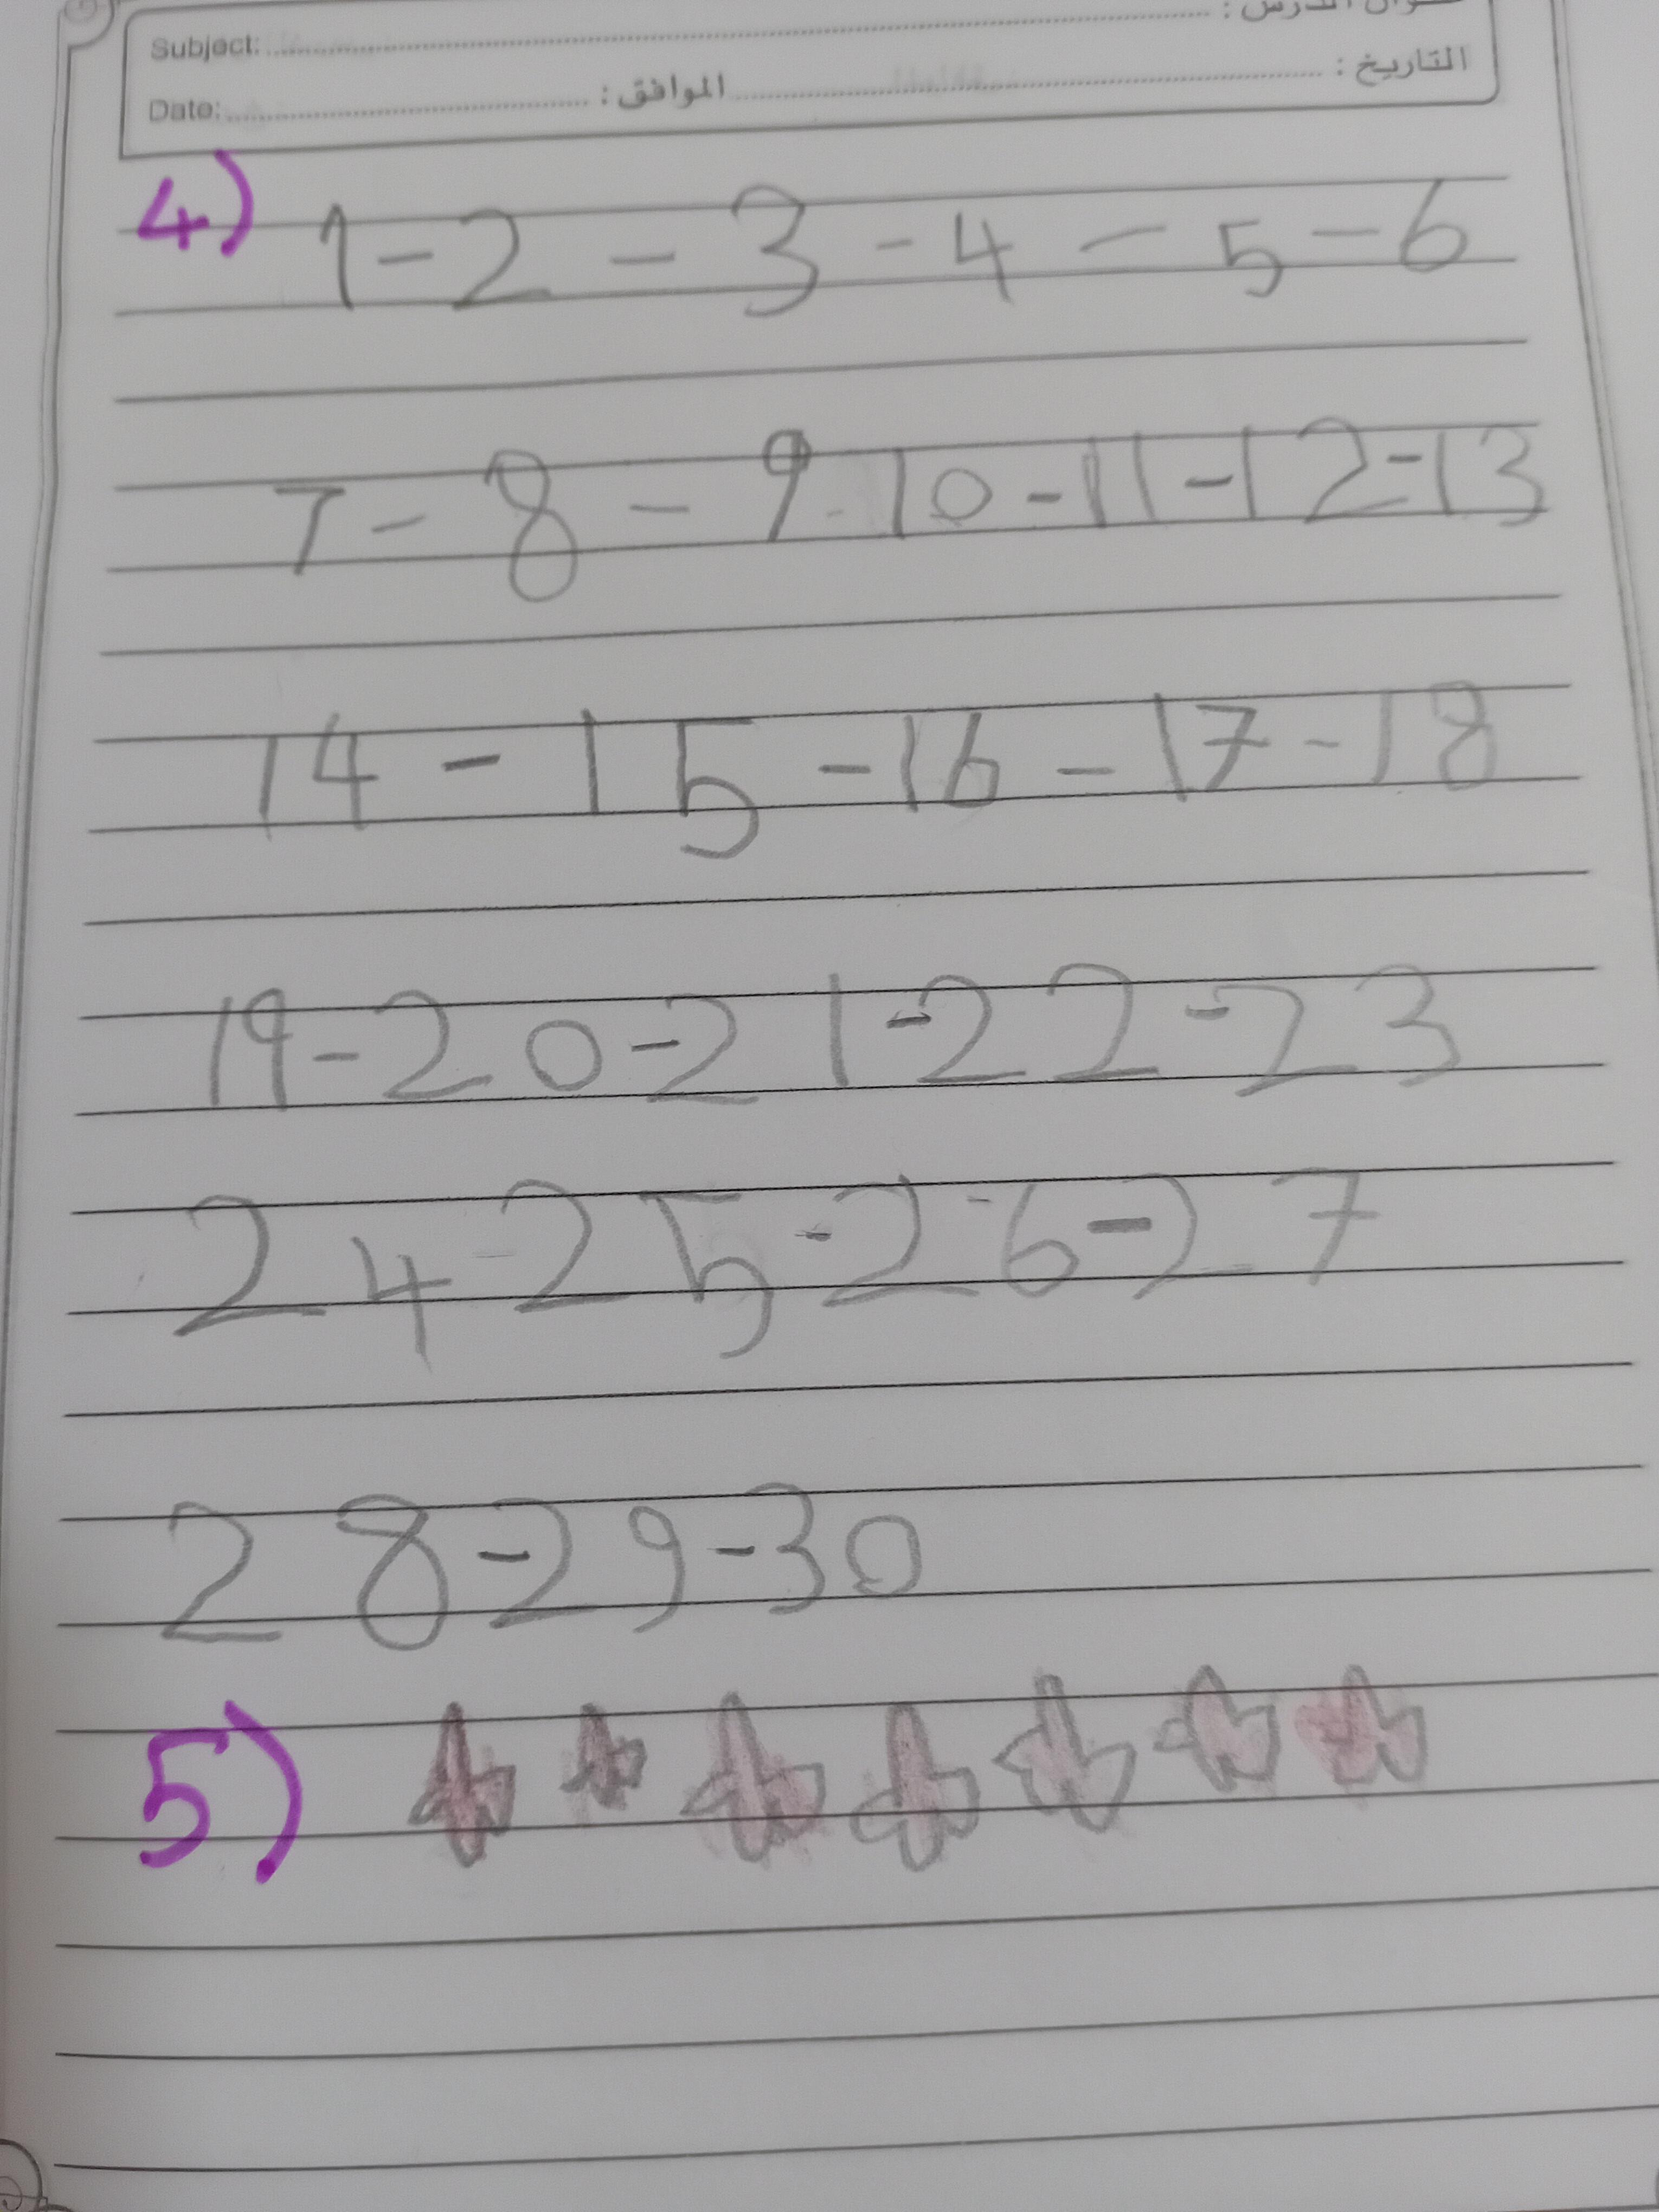 Subject: الدرس :
Date: الموافق : التاريخ :
4) 1 - 2 - 3 - 4 - 5 - 6
7 - 8 - 9 - 10 - 11 - 12 - 13
14 - 15 - 16 - 17 - 18
19 - 20 - 21 - 22 - 23
24 - 25 - 26 - 27
28 - 29 - 30
5)